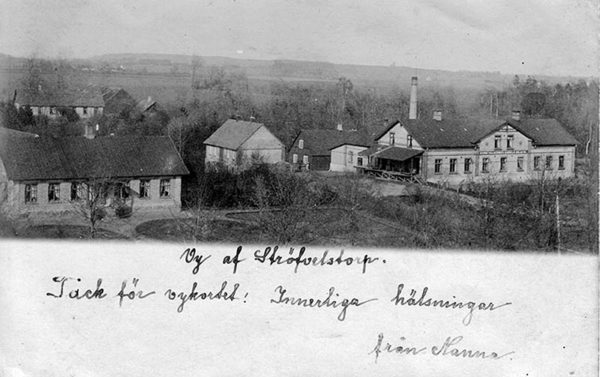 Vy af Ströfvelstorp.
Tack för vykortet! Innerliga hälsningar
från Nanna.